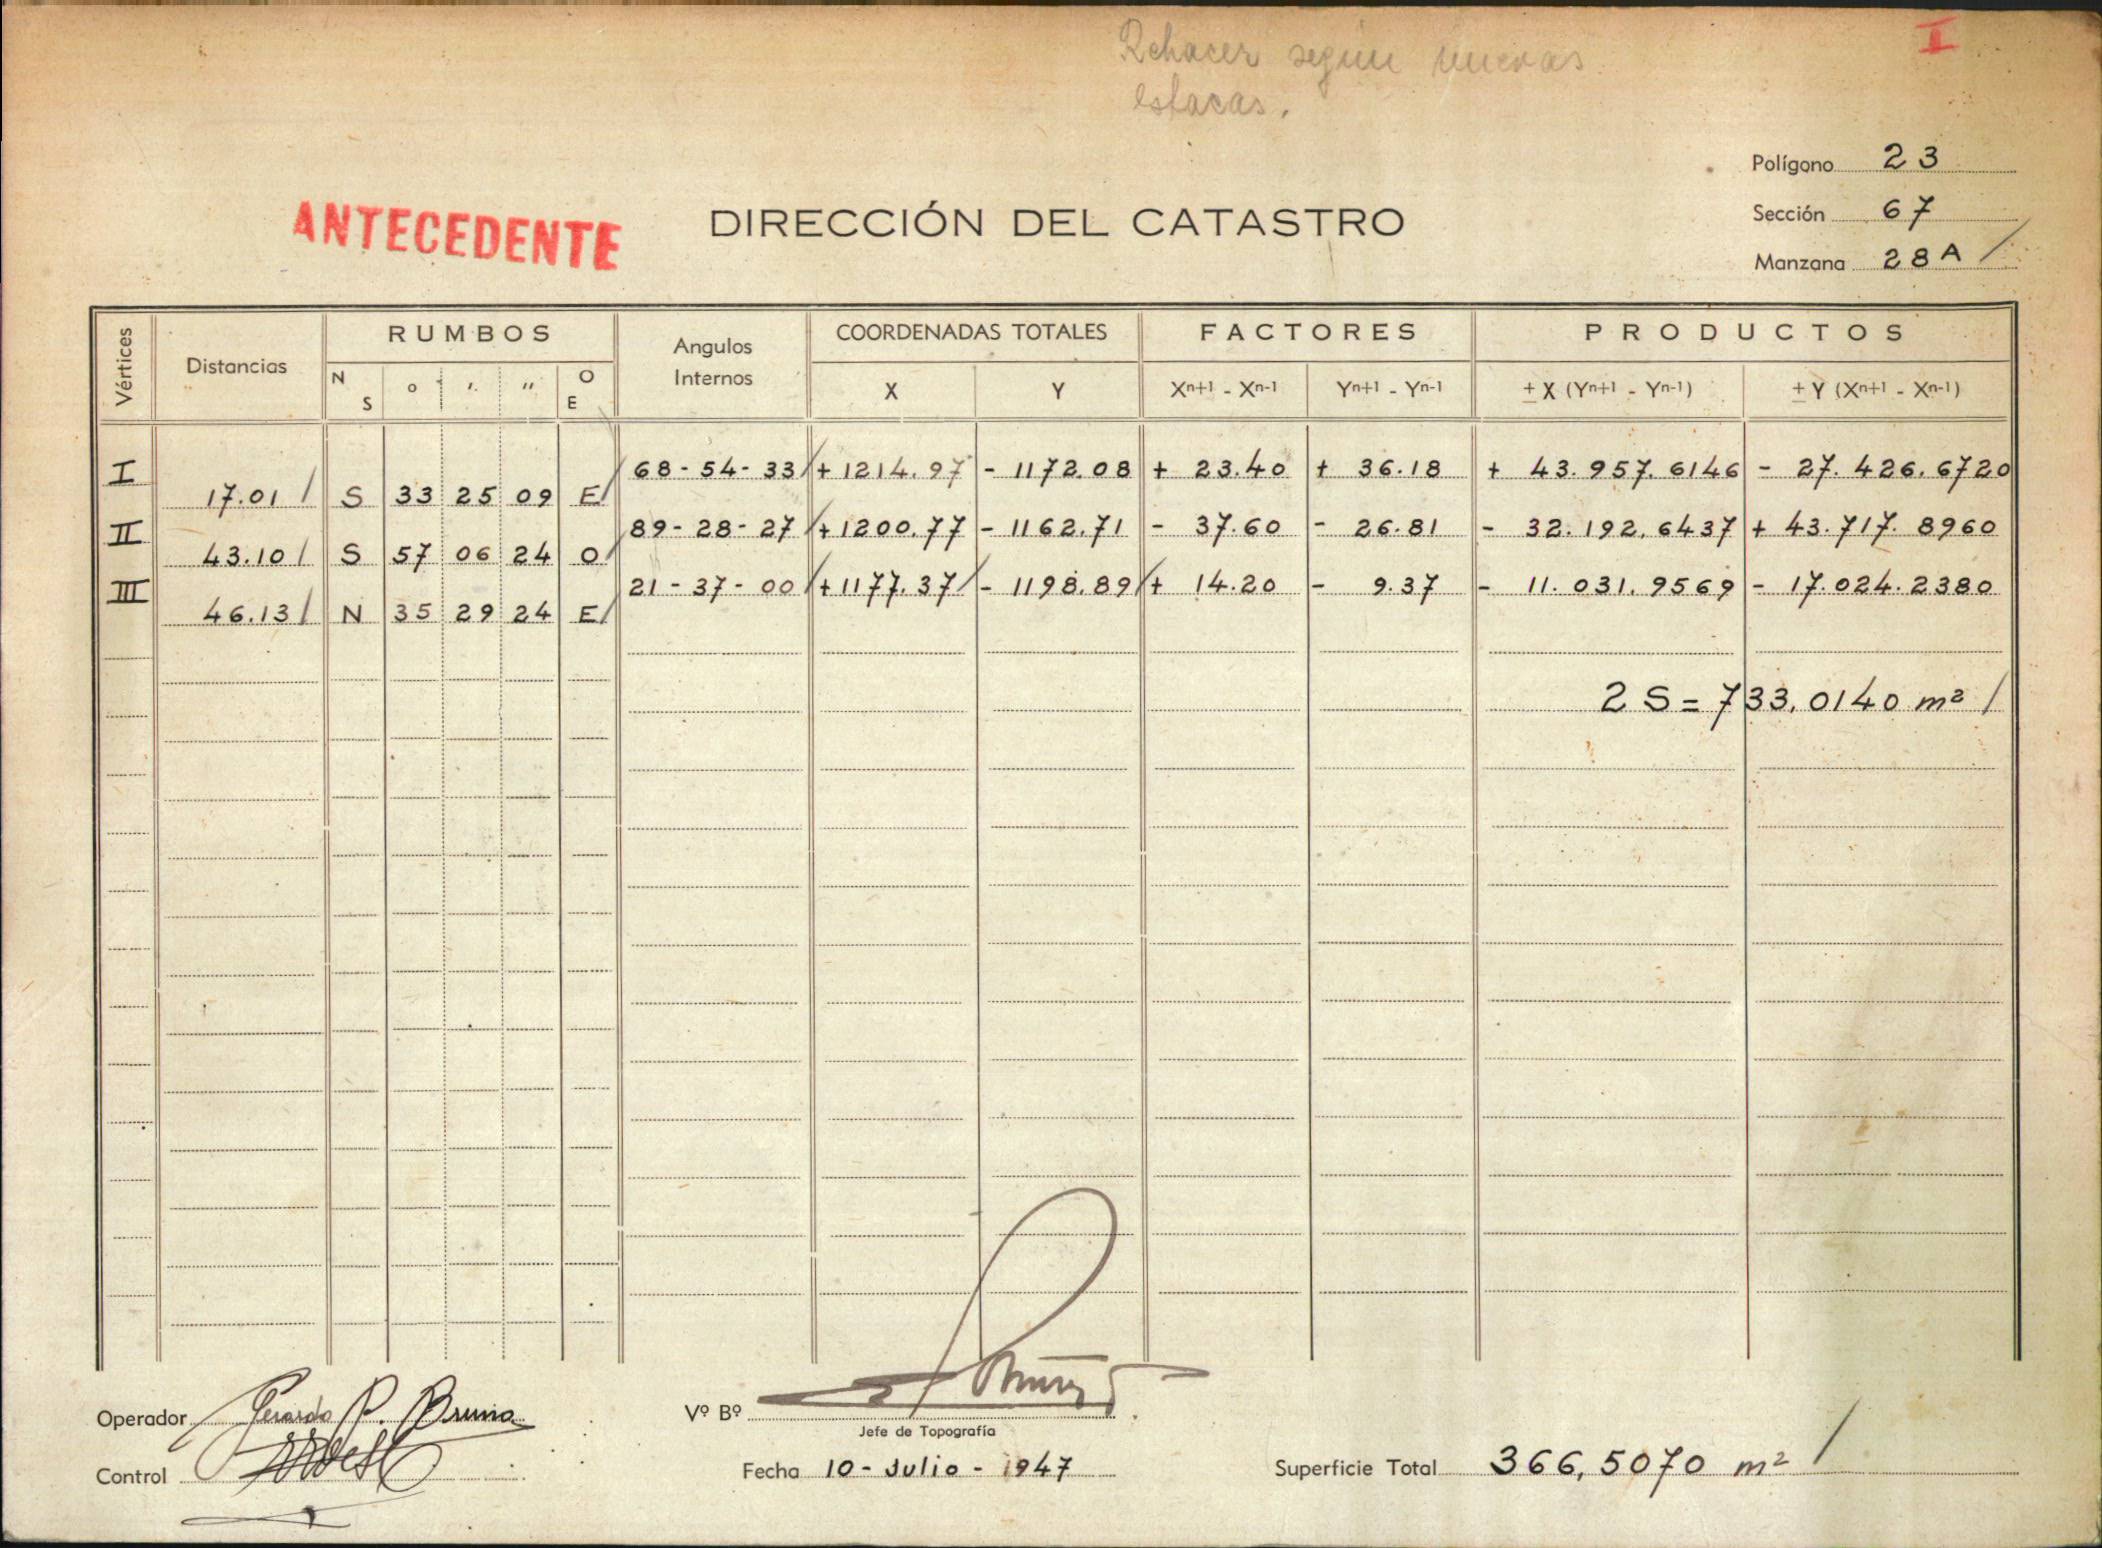 Rehacer según nuevas
estacas.
I
Polígono 23
Sección 67
Manzana 28A /
ANTECEDENTE
DIRECCIÓN DEL CATASTRO
Vértices Distancias RUMBOS Angulos Internos COORDENADAS TOTALES FACTORES PRODUCTOS
N S ° ′ ″ O E X Y Xn+1 - Xn-1 Yn+1 - Yn-1 ± X (Yn+1 - Yn-1) ± Y (Xn+1 - Xn-1)
I 68-54-33 / +1214.97 - 1172.08 + 23.40 + 36.18 + 43.957.6146 - 27.426.6720
17.01 / S 33 25 09 E /
II 89-28-27 / +1200.77 - 1162.71 - 37.60 - 26.81 - 32.192.6437 + 43.717.8960
43.10 / S 57 06 24 O /
III 21-37-00 / +1177.37 / - 1198.89 / + 14.20 - 9.37 - 11.031.9569 - 17.024.2380
46.13 / N 35 29 24 E /
2 S = 733,0140 m² /
Operador Gerardo P. Bruno
Vº Bº
Jefe de Topografía
Control
Fecha 10 - Julio - 1947
Superficie Total 366,5070 m² /